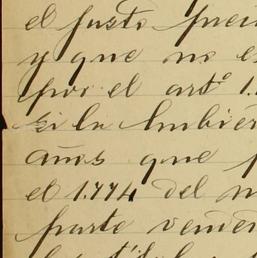 el justo preci
y que no es
por el art.º 1.
si la hubier
años que p
el 1.774 del m
parte vende